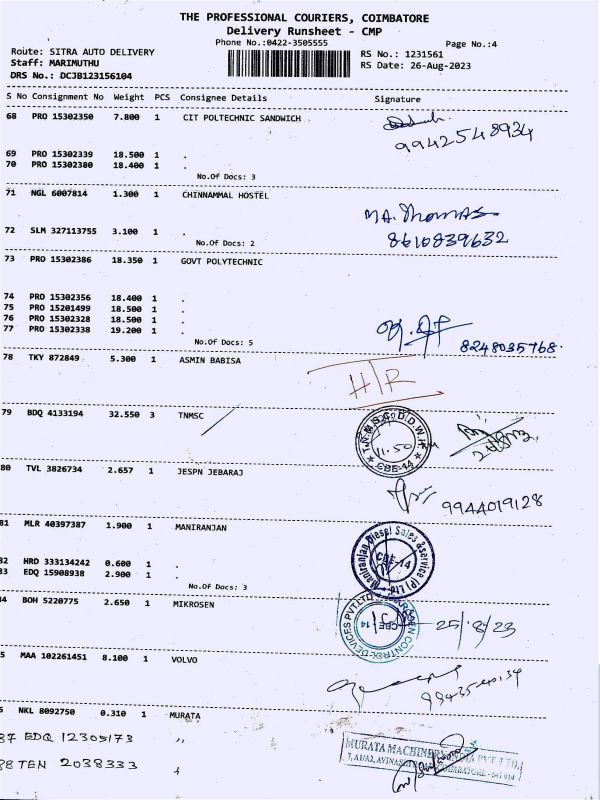 THE PROFESSIONAL COURIERS, COIMBATORE
Delivery Runsheet - CMP
Phone No.:0422-3505555
Page No.:4
Route: SITRA AUTO DELIVERY
Staff: MARIMUTHU
DRS No.: DCJB123156104
RS No.: 1231561
RS Date: 26-Aug-2023
S No Consignment No Weight PCS Consignee Details Signature
68 PRO 15302350 7.800 1 CIT POLTECHNIC SANDWICH
9942548934
69 PRO 15302339 18.500 1 .
70 PRO 15302380 18.400 1 .
No.Of Docs: 3
71 NGL 6007814 1.300 1 CHINNAMMAL HOSTEL
MA. Thomas
8610839632
72 SLM 327113755 3.100 1 .
No.Of Docs: 2
73 PRO 15302386 18.350 1 GOVT POLYTECHNIC
74 PRO 15302356 18.400 1 .
75 PRO 15201499 18.500 1 .
76 PRO 15302328 18.500 1 .
77 PRO 15302338 19.200 1 .
8248035768.
No.Of Docs: 5
78 TKY 872849 5.300 1 ASMIN BABISA
H/R
79 BDQ 4133194 32.550 3 TNMSC
11.50
CBE-14
80 TVL 3826734 2.657 1 JESPN JEBARAJ
9944019128
81 MLR 40397387 1.900 1 MANIRANJAN
Maniranjan Diesel Sales & Service (P) Ltd.
CBE-14
32 HRD 333134242 0.600 1 .
33 EDQ 15908938 2.900 1 .
No.Of Docs: 3
34 BOH 5220775 2.650 1 MIKROSEN
CONTROL DEVICES PVT LTD
CBE 14
25/8/23
5 MAA 102261451 8.100 1 VOLVO
5 NKL 8092750 0.310 1 MURATA
87 EDQ 12305173 ,,
88 TEN 2038333 ,,
MURATA MACHINERY INDIA PVT. LTD.,
7, A1/A2, AVINASHI COIMBATORE - 641 014